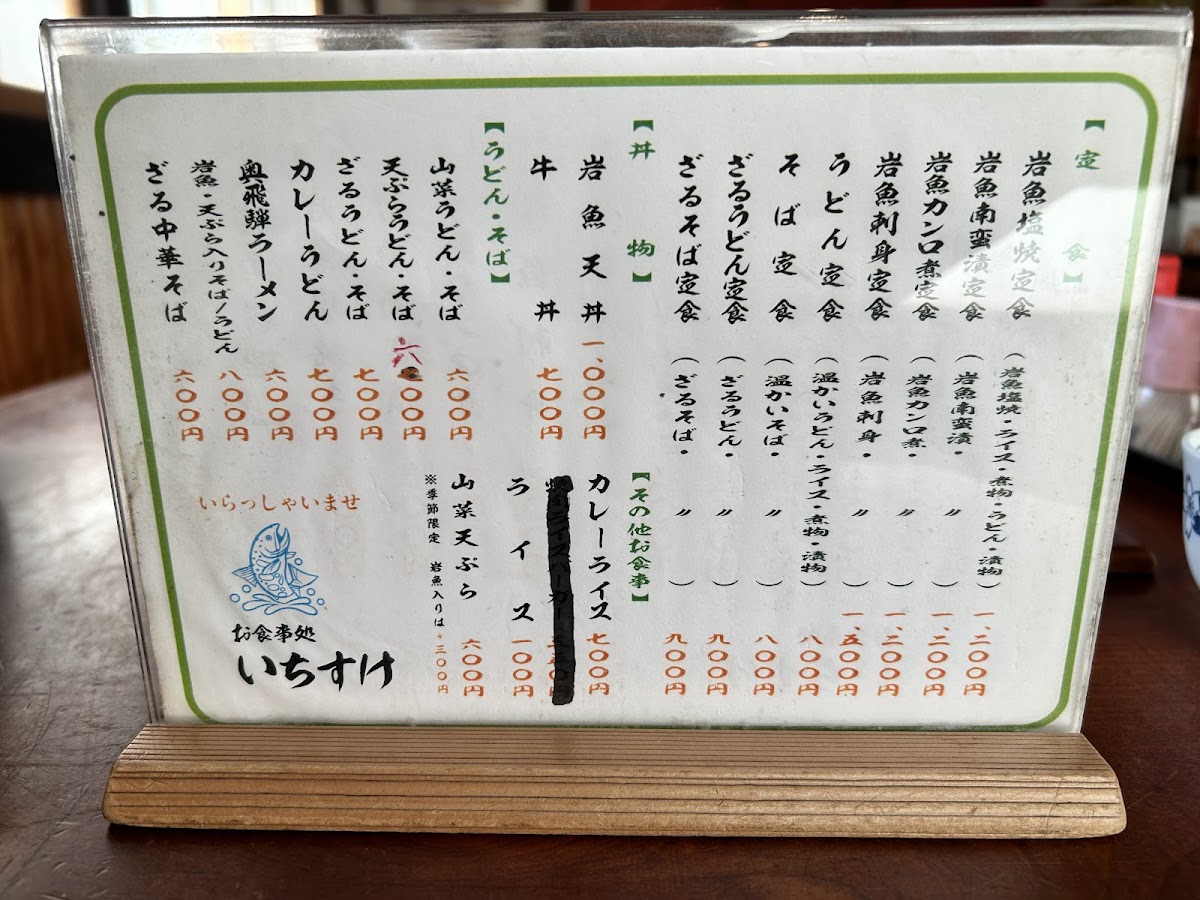 【定食】
岩魚塩焼定食（岩魚塩焼・ライス・煮物・うどん・漬物）一、二〇〇円
岩魚南蛮漬定食（岩魚南蛮漬・〃）一、二〇〇円
岩魚カンロ煮定食（岩魚カンロ煮・〃）一、二〇〇円
岩魚刺身定食（岩魚刺身・〃）一、五〇〇円
うどん定食（温かいうどん・ライス・煮物・漬物）八〇〇円
そば定食（温かいそば・〃）八〇〇円
ざるうどん定食（ざるうどん・〃）九〇〇円
ざるそば定食（ざるそば・〃）九〇〇円
【丼物】
岩魚天丼 一、〇〇〇円
牛丼 七〇〇円
【その他お食事】
カレーライス 七〇〇円
ライス 一〇〇円
山菜天ぷら 六〇〇円
※季節限定 岩魚入りは+三〇〇円
【うどん・そば】
山菜うどん・そば 六〇〇円
天ぷらうどん・そば 六〇〇円
ざるうどん・そば 七〇〇円
カレーうどん 七〇〇円
奥飛騨ラーメン 六〇〇円
岩魚・天ぷら入りそば/うどん 八〇〇円
ざる中華そば 六〇〇円
いらっしゃいませ
お食事処
いちすけ